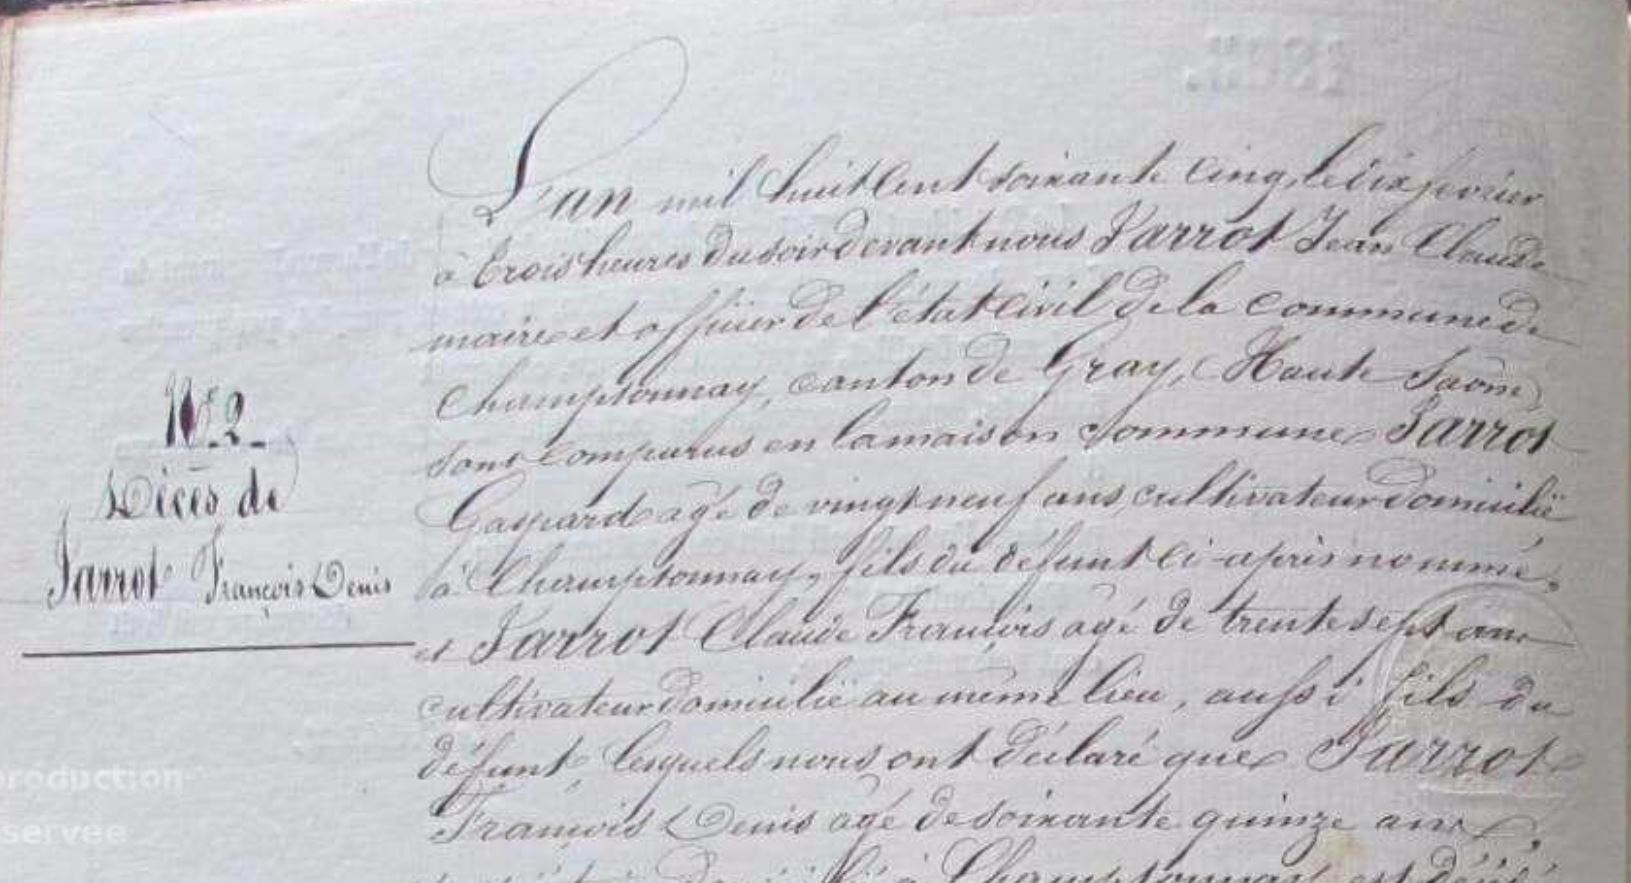 L'an mil huit cent soixante cinq, le dix fevrier
à trois heures du soir devant nous Parrot Jean Claude
maire et officier de l'état civil de la commune de
Champtonnay, canton de Gray, Haute Saône
sont comparus en la maison commune Parrot
Gaspard agé de vingt neuf ans, cultivateur domicilié
à Champtonnay, fils du défunt ci-après nommé,
et Parrot Claude François agé de trente sept ans
cultivateur domicilié au même lieu, aussi fils du
défunt, lesquels nous ont déclaré que Parrot
François Denis agé de soixante quinze ans,
domicilié à Champtonnay est décédé
N° 2
Décès de
Parrot François Denis
production
servée